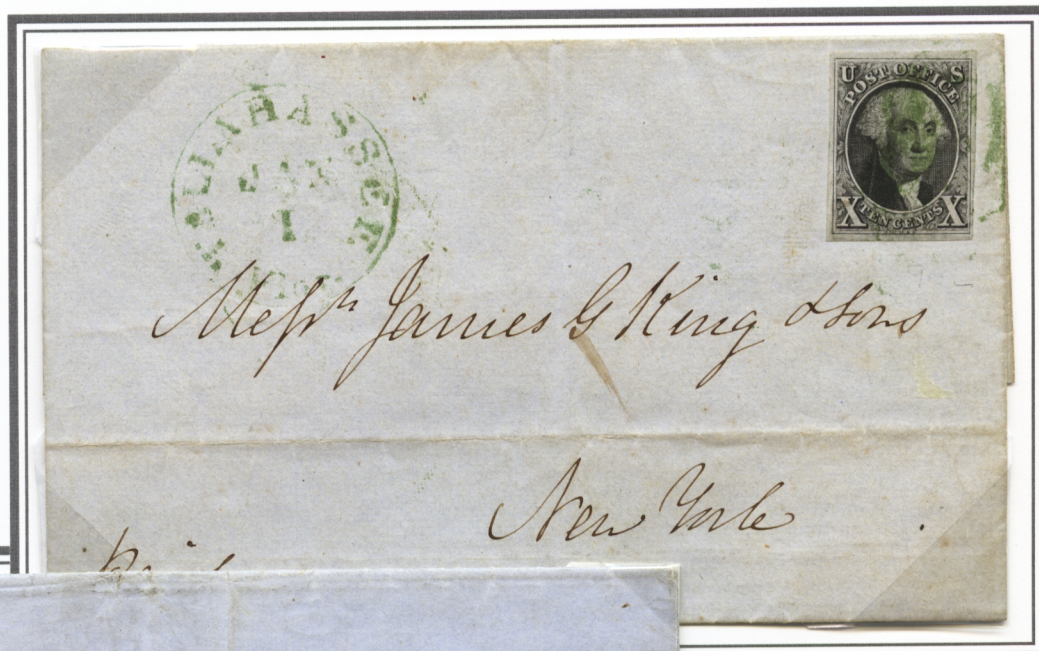 TALLAHASSEE
JAN
1
U S
POST OFFICE
X TEN CENTS X
Messrs James G King & Sons
New York